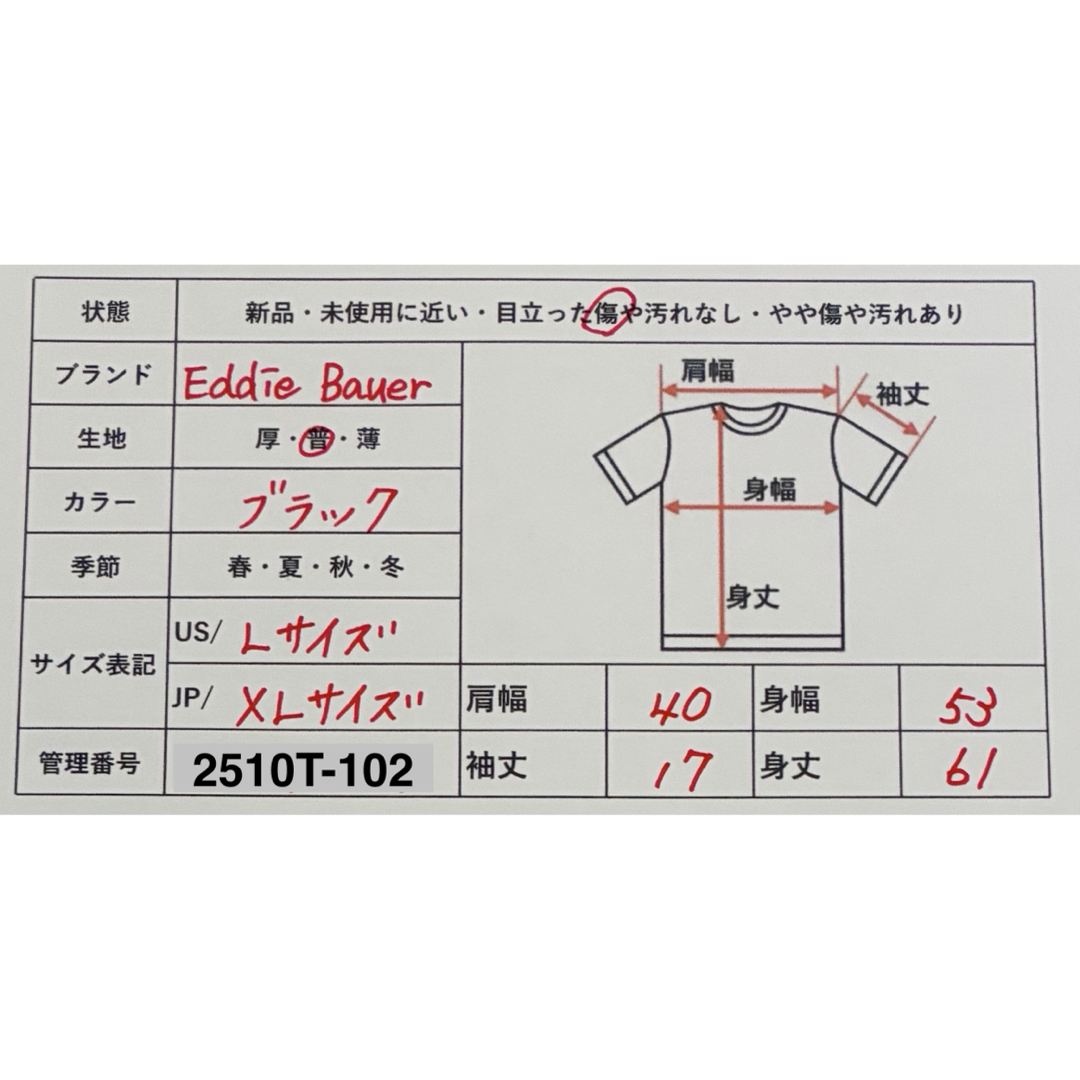 状態 新品・未使用に近い・目立った傷や汚れなし・やや傷や汚れあり
ブランド Eddie Bauer
生地 厚・普・薄
カラー ブラック
季節 春・夏・秋・冬
サイズ表記
US/ Lサイズ
JP/ XLサイズ
管理番号 2510T-102
肩幅
袖丈
身幅
身丈
肩幅 40 身幅 53
袖丈 17 身丈 61